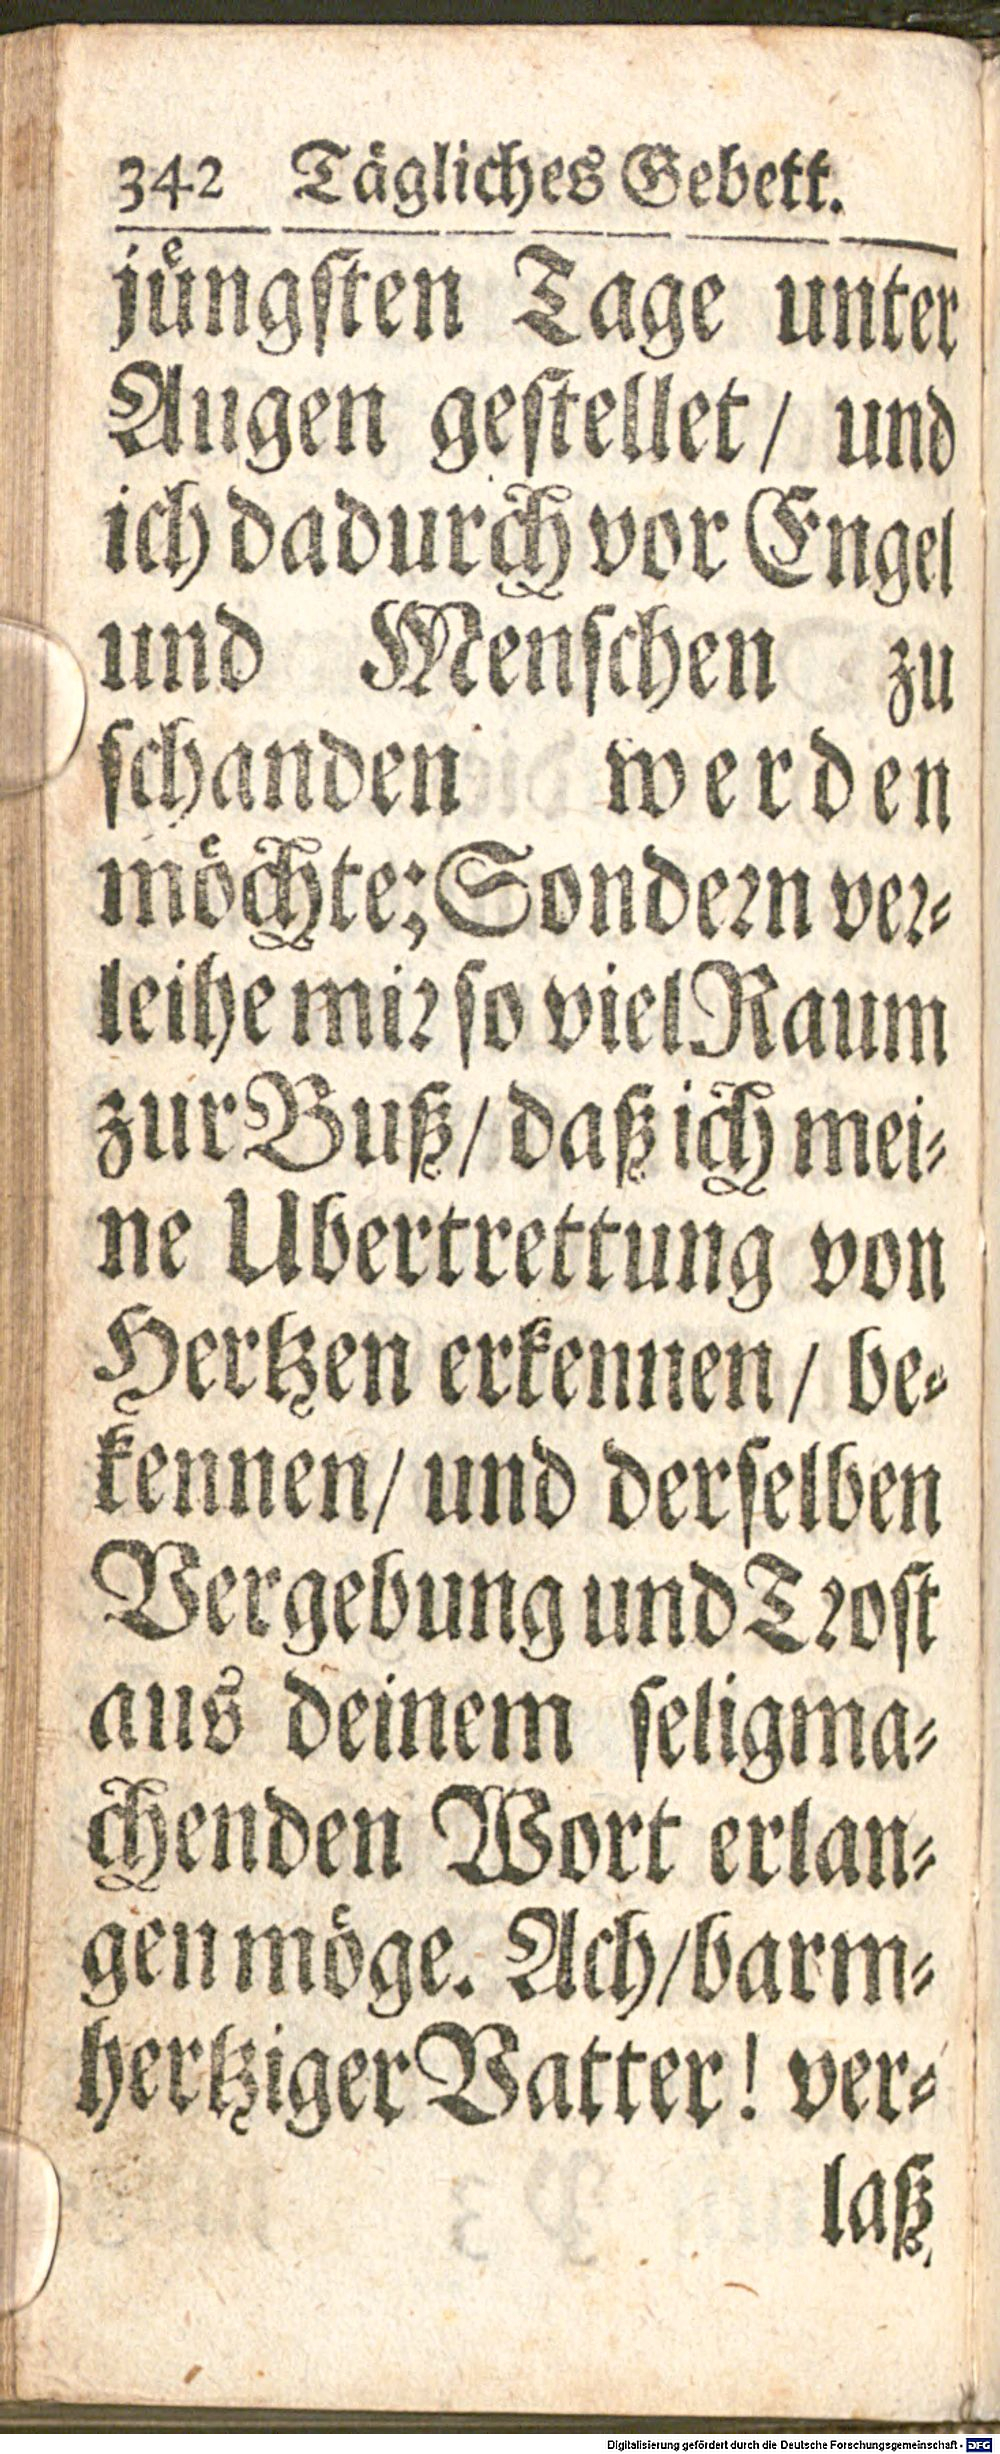 342 Tägliches Gebett.
jüngſten Tage unter
Augen geſtellet / und
ich dadurch vor Engel
und Menſchen zu
ſchanden werden
möchte; Sondern ver⸗
leihe mir ſo viel Raum
zur Buß / daß ich mei⸗
ne Ubertrettung von
Hertzen erkennen / be⸗
kennen / und derſelben
Vergebung und Troſt
aus deinem ſeligma⸗
chenden Wort erlan⸗
gen möge. Ach / barm⸗
hertziger Vatter! ver⸗
laß
Digitalisierung gefördert durch die Deutsche Forschungsgemeinschaft - DFG